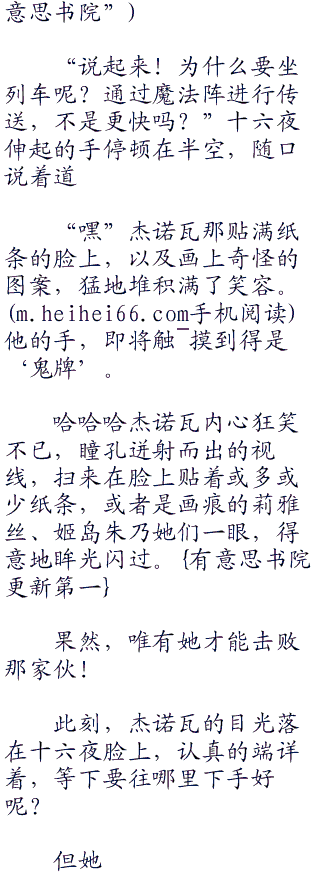 意思书院”）
“说起来！为什么要坐
列车呢？通过魔法阵进行传
送，不是更快吗？”十六夜
伸起的手停顿在半空，随口
说着道
“嘿”杰诺瓦那贴满纸
条的脸上，以及画上奇怪的
图案，猛地堆积满了笑容。
(m.heihei66.com手机阅读)
他的手，即将触¯摸到得是
‘鬼牌’。
哈哈哈杰诺瓦内心狂笑
不已，瞳孔迸射而出的视
线，扫来在脸上贴着或多或
少纸条，或者是画痕的莉雅
丝、姬岛朱乃她们一眼，得
意地眸光闪过。{有意思书院
更新第一}
果然，唯有她才能击败
那家伙！
此刻，杰诺瓦的目光落
在十六夜脸上，认真的端详
着，等下要往哪里下手好
呢？
但她